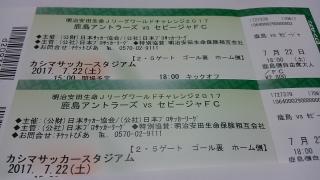 明治安田生命Jリーグワールドチャレンジ2017
鹿島アントラーズ vs セビージャFC
*主催:(公財)日本サッカー協会/(公社)日本プロサッカーリーグ
*主管:(公社)日本プロサッカーリーグ *特別協賛:明治安田生命保険相互会社
*お問合せ:チケットぴあ TEL. 0570-02-9111
カシマサッカースタジアム
2017. 7.22(土)
2・5ゲート ゴール裏 ホーム側
18:00 キックオフ
7月22日
18:00
明治安田生命Jリーグワールドチャレンジ2017
鹿島アントラーズ vs セビージャFC
*主催:(公財)日本サッカー協会/(公社)日本プロサッカーリーグ
*主管:(公社)日本プロサッカーリーグ *特別協賛:明治安田生命保険相互会社
*お問合せ:チケットぴあ TEL. 0570-02-9111
カシマサッカースタジアム
2017. 7.22(土)
2・5ゲート ゴール裏 ホーム側
7月22日